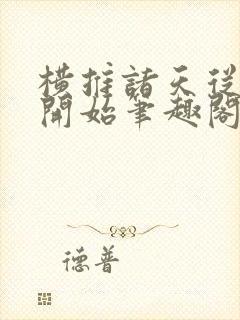 橫推諸天從
開始筆趣閣
德普